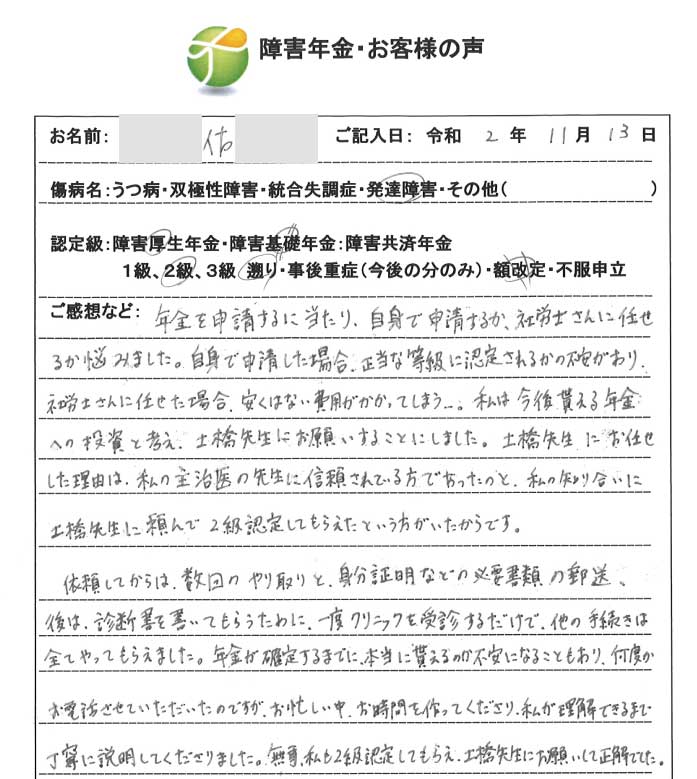 障害年金・お客様の声
お名前： 佑 ご記入日： 令和 2 年 11 月 13 日
傷病名：うつ病・双極性障害・統合失調症・発達障害・その他（ ）
認定級：障害厚生年金・障害基礎年金：障害共済年金
1級、2級、3級 遡り・事後重症（今後の分のみ）・額改定・不服申立
ご感想など： 年金を申請するに当たり、自身で申請するか、社労士さんに任せ
るか悩みました。自身で申請した場合、正当な等級に認定されるかの不安があり、
社労士さんに任せた場合、安くはない費用がかかってしまう…。私は今後貰える年金
への投資と考え、土橋先生にお願いすることにしました。土橋先生にお任せ
した理由は、私の主治医の先生に信頼されている方であったのと、私の知り合いに
土橋先生に頼んで2級認定してもらえたという方がいたからです。
依頼してからは、数回のやり取りと、身分証明などの必要書類の郵送、
後は、診断書を書いてもらうために、一度クリニックを受診するだけで、他の手続きは
全てやってもらえました。年金が確定するまでに、本当に貰えるのか不安になることもあり、何度か
お電話させていただいたのですが、お忙しい中、お時間を作ってくださり、私が理解できるまで
丁寧に説明してくださりました。無事、私も2級認定してもらえ、土橋先生にお願いして正解でした。